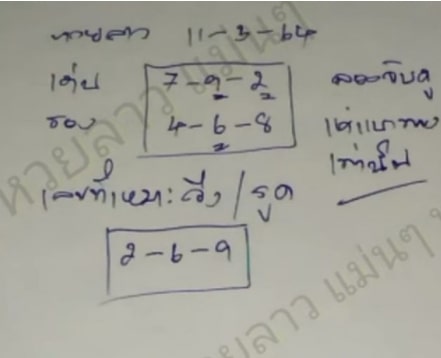 หวยลาว 11-3-64
เด่น 7-9-2 ลองจับคู่
รอง 4-6-8 เด่นแนวทาง
เท่านั้น
เลขที่เหมาะวิ่ง/รูด
2-6-9
หวยลาว แม่นๆ
หวยลาว แม่นๆ